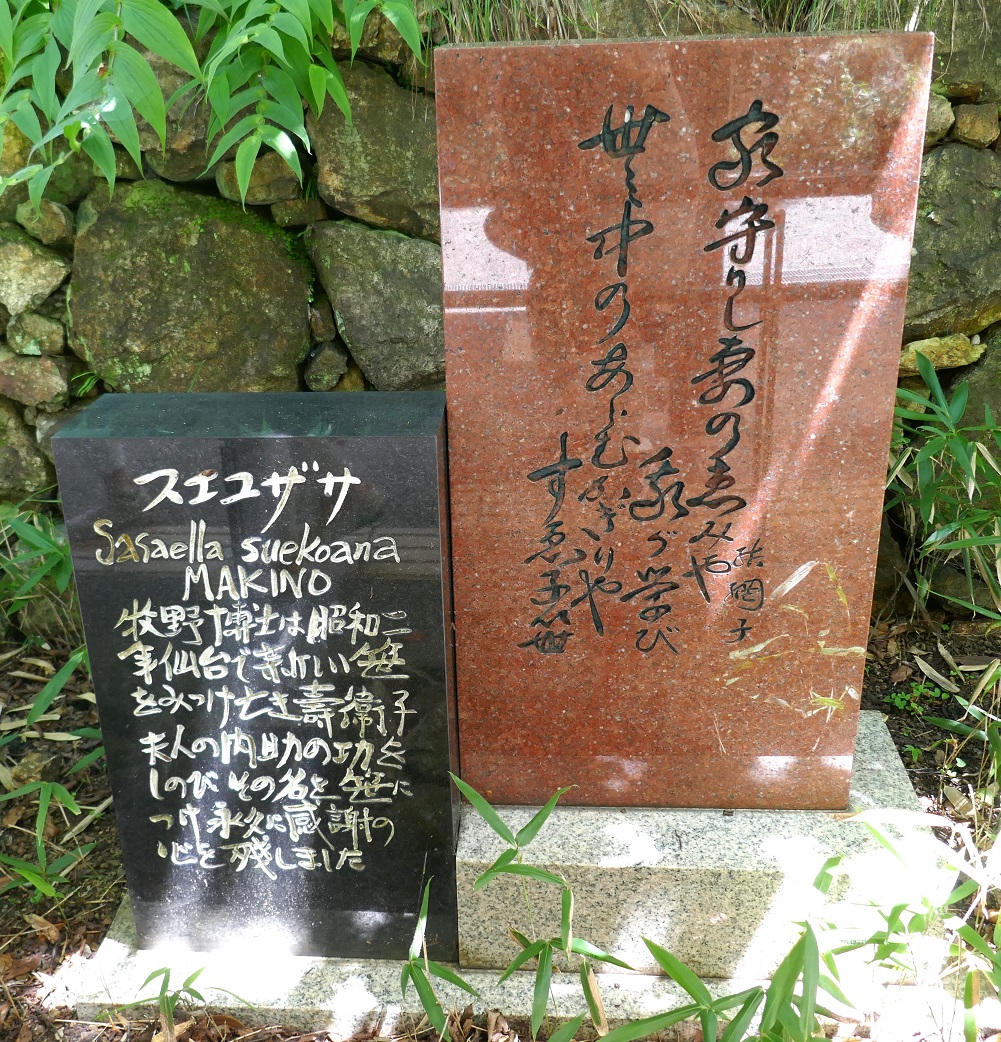 スエコザサ
Sasaella suekoana
MAKINO
牧野博士は昭和二
年仙台で新しい笹
をみつけ亡き壽衛子
夫人の内助の功を
しのび その名を笹に
つけ永久に感謝の
心を残しました
家守りし妻の恵みや
我が学び
世の中のあらむかぎりや
すゑ子笹
結網子